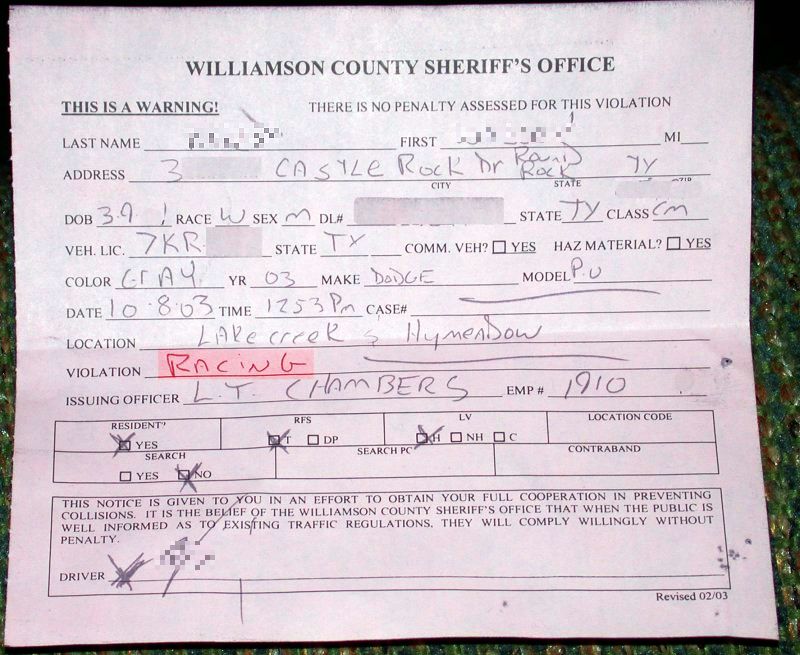 WILLIAMSON COUNTY SHERIFF'S OFFICE
THIS IS A WARNING! THERE IS NO PENALTY ASSESSED FOR THIS VIOLATION
LAST NAME FIRST MI
ADDRESS 3 CASTLE ROCK Dr ROUND ROCK TX
CITY STATE ZIP
DOB 3.9 RACE W SEX M DL# STATE TX CLASS CM
VEH. LIC. 7KR STATE TX COMM. VEH? YES HAZ MATERIAL? YES
COLOR GRAY YR 03 MAKE DODGE MODEL P.U
DATE 10.8.03 TIME 1253 Pm CASE#
LOCATION LAKecreek & Hymeadow
VIOLATION RACING
ISSUING OFFICER L.T. CHAMBERS EMP # 1910
RESIDENT? RFS LV LOCATION CODE
YES T DP H NH C
SEARCH SEARCH PC CONTRABAND
YES NO
THIS NOTICE IS GIVEN TO YOU IN AN EFFORT TO OBTAIN YOUR FULL COOPERATION IN PREVENTING
COLLISIONS. IT IS THE BELIEF OF THE WILLIAMSON COUNTY SHERIFF'S OFFICE THAT WHEN THE PUBLIC IS
WELL INFORMED AS TO EXISTING TRAFFIC REGULATIONS, THEY WILL COMPLY WILLINGLY WITHOUT
PENALTY.
DRIVER X
Revised 02/03